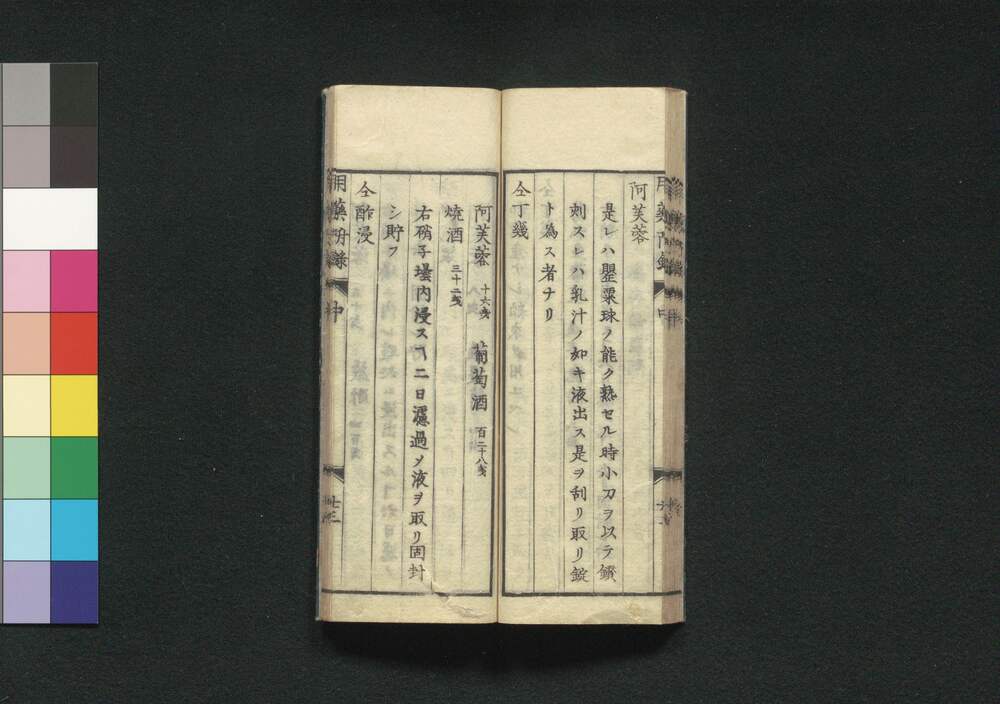 阿芙蓉
是レハ罌粟球ノ能ク熟セル時小刀ヲ以テ鐁
刺スレハ乳汁ノ如キ液出ス是ヲ刮リ取リ錠
ト為ス者ナリ
仝丁幾
阿芙蓉 十六戔 葡萄酒 百二十八戔
焼酒 三十二戔
右硝子壜内浸スヿ二日濾過〆液ヲ取リ固封
シ貯フ
仝酢浸
用藥明録 中